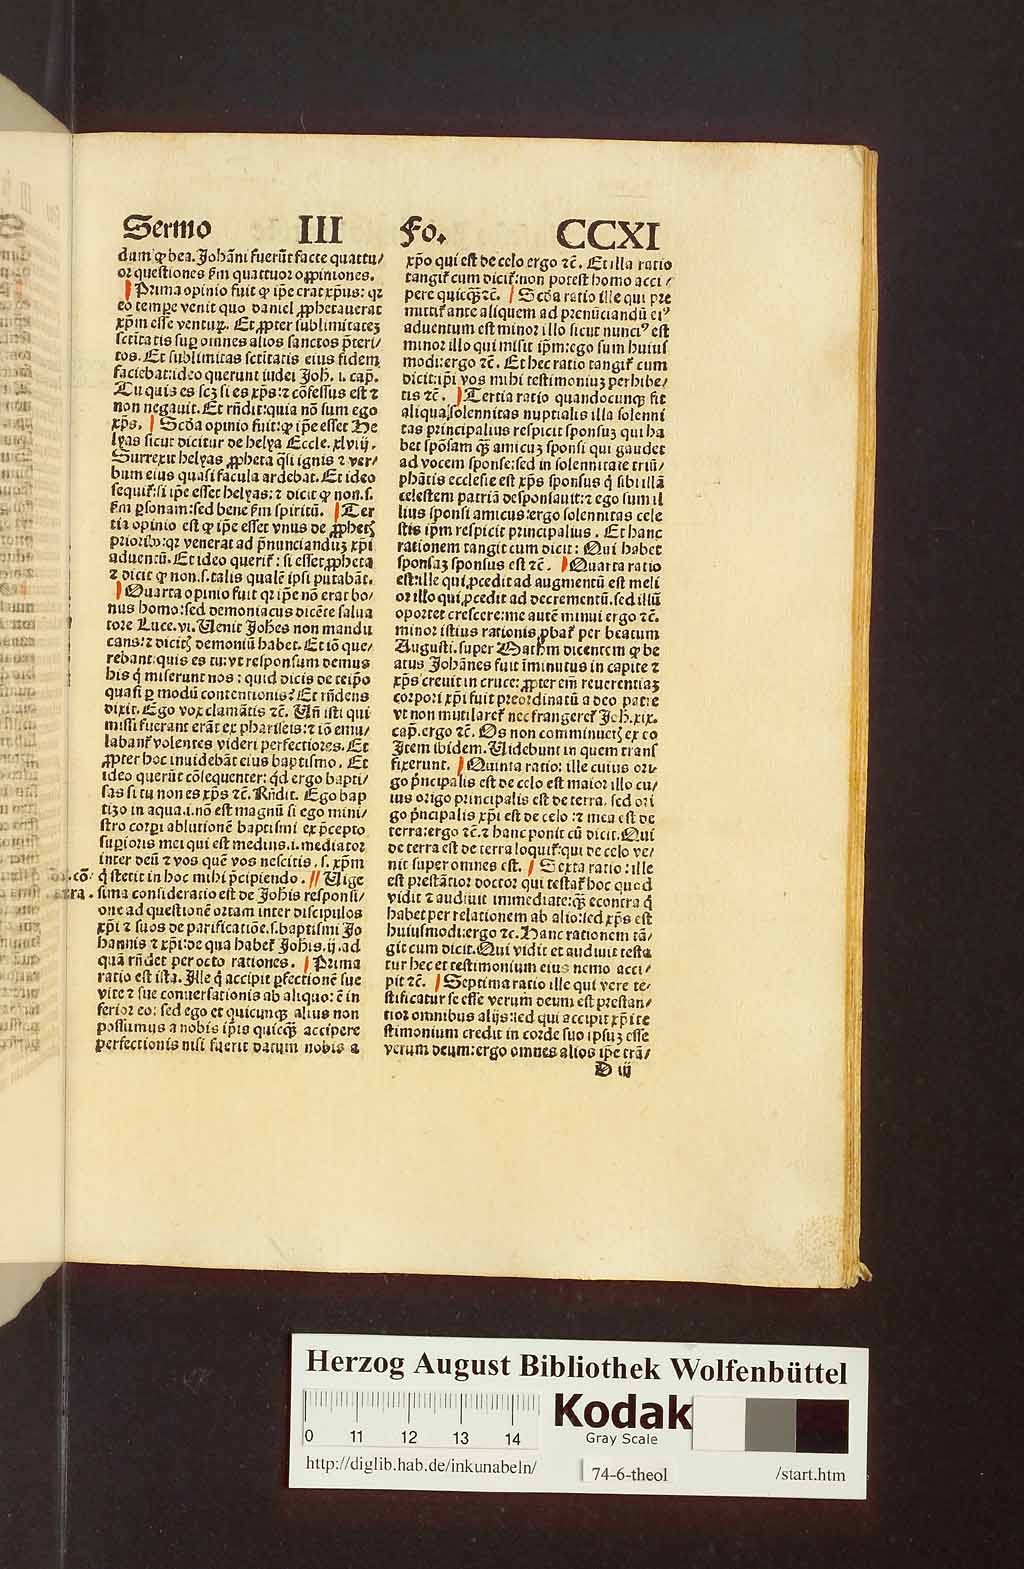 Sermo III Fo. CCXI
dam ꝙ bea. Johãni fuerũt facte quattu/
or questiones ẜm quattuor opꝓiniones.
Prima opinio fuit ꝙ ip̃e erat xp̃us: qꝛ
eo tempꝛe venit quo daniel ꝓphetauerat
xp̃m esse venturꝝ. Et ꝓpter sublimitateʒ
sctitatis suꝑ omnes alios sanctos p̃teri/
tos. Et sublimitas sctitatis eius fidem
faciebat: ideo querunt iudei Joh̃. i. cap̃.
Tu quis es scʒ si es xp̃s: ⁊ cõfessus est ⁊
non negauit. Et rñdit: quia nõ sum ego
xp̃s. Scđa opinio fuit: ꝙ ip̃e esset He
lyas sicut dicitur de helya Eccle. xlviij.
Surrexit helyas ꝓpheta q̃si ignis ⁊ ver/
bum eius quasi facula ardebat. Et ideo
sequit̃: si ip̃e esset helyas: ⁊ dicit ꝙ non. s.
ẜm ꝑsonam: sed bene ẜm spiritũ. Ter
tia opinio est ꝙ ip̃e esset vnus de ꝓphetꝭ
prioribꝰ: qꝛ venerat ad p̃nunciandũ xp̃i
aduentũ. Et ideo querit̃: si esset ꝓpheta
⁊ dicit ꝙ non. s. talis qualẽ ipsi putabãt.
Quarta opinio fuit qꝛ ip̃e nõ erat bo/
nus homo: sed demoniacus dicẽte salua
tore Luce. vi. Uenit Joh̃es non mandu
cans: ⁊ dicitꝭ demoniũ habet. Et iõ que/
rebant: quis es tu: vt responsum demus
his q̃ miserunt nos: quid dicis de teip̃o
quasi ꝑ modũ contentionis? Et rñdens
dixit. Ego vox clamãtis ⁊c̃. Uñ isti qui
missi fuerant erãt ex phariseis: ⁊ iõ emu/
labant̃ volentes videri perfectiores. Et
ꝓpter hoc inuidebãt eius baptismo. Et
ideo querũt cõsequenter: q̃d ergo bapti/
sas si tu non es xp̃s ⁊c̃. Rñdit. Ego bap
tizo in aqua. i. nõ est magnũ si ego mini/
stro corꝑi ablutionẽ baptismi ex p̃cepto
suꝑioris mei qui est medius. i. mediator
inter deũ ⁊ vos quẽ vos nescitis. s. xp̃m
q̃ stetit in hoc mihi p̃cipiendo. Uige
sima consideratio est de Joh̃is responsi/
one ad questionẽ ortam inter discipulos
xp̃i ⁊ suos de purificatiõe. s. baptismi Jo
hannis ⁊ xp̃i: de qua habet̃ Joh̃is. ij. ad
quã rñdet per octo rationes. Prima
ratio est ista. Ille q̃ accipit ꝑfectionẽ sue
vite ⁊ sue conuersationis ab aliquo: ẽ in
ferior eo: sed ego et quicunqꝫ alius non
possumus a nobis ip̃is quicqꝫ accipere
perfectionis nisi fuerit datum nobis a
xp̃o qui est de celo ergo ⁊c̃. Et illa ratio
tangit̃ cum dicit̃: non potest homo acci/
pere quicqꝫ ⁊c̃. Scđa ratio ille qui pre
mittit̃ ante aliquem ad prenũciandũ eiꝰ
aduentum est minor illo sicut nunciꝰ est
minor illo qui misit ip̃m: ego sum huius
modi: ergo ⁊c̃. Et hec ratio tangit̃ cum
dicit: ip̃i vos mihi testimoniuʒ perhibe/
tis ⁊c̃. Tertia ratio quandocunqꝫ fit
aliqua solennitas nuptialis illa solenni
tas principalius respicit sponsuʒ qui ha
bet spõsam qꝫ amicuʒ sponsi qui gaudet
ad vocem sponse: sed in solennitate triũ/
phãtis ecclesie est xp̃s sponsus q̃ sibi illã
celestem patriã desponsauit: ⁊ ego sum il
lius sponsi amicus: ergo solennitas cele
stis ip̃m respicit principalius. Et hanc
rationem tangit cum dicit: Qui habet
sponsaʒ sponsus est ⁊c̃. Quarta ratio
est: ille qui ꝓcedit ad augmentũ est meli
or illo qui ꝓcedit ad decrementũ. sed illũ
oportet crescere: me autẽ minui ergo ⁊c̃.
minor istius rationis ꝓbat̃ per beatum
Augusti. super Math̃m dicentem ꝙ be
atus Johãnes fuit ĩminutus in capite ⁊
xp̃s creuit in cruce: ꝓpter em̃ reuerentiaʒ
corpori xp̃i fuit preordinatũ a deo patre
vt non mutilaret̃ nec frangeret̃ Joh̃. xix.
cap̃. ergo ⁊c̃. Os non comminuetꝭ ex eo
Item ibidem. Uidebunt in quem trans
fixerunt. Quinta ratio: ille cuius ori/
go p̃ncipalis est de celo est maior illo cu/
ius origo principalis est de terra. sed ori
go p̃ncipalis xp̃i est de celo: ⁊ mea est de
terra: ergo ⁊c̃. ⁊ hanc ponit cũ dicit. Qui
de terra est de terra loquit̃: qui de celo ve/
nit super omnes est. Sexta ratio: ille
est prestãtior doctor qui testat̃ hoc quod
vidit ⁊ audiuit immediate: qꝫ econtra q̃
habet per relationem ab alio: sed xp̃s est
huiusmodi: ergo ⁊c. Hanc rationem tã/
git cum dicit. Qui vidit et audiuit testa
tur hec et testimonium eius nemo acci/
pit ⁊c̃. Septima ratio ille qui vere te/
stificatur se esse verum deum est prestan/
tior omnibus alijs: sed qui accipit xp̃i te
stimonium credit in corde suo ipsuʒ esse
verum deum: ergo omnes alios ip̃e trã/
D iij
Herzog August Bibliothek Wolfenbüttel
0 11 12 13 14
Kodak
Gray Scale
http://diglib.hab.de/inkunabeln/
74-6-theol
/start.htm